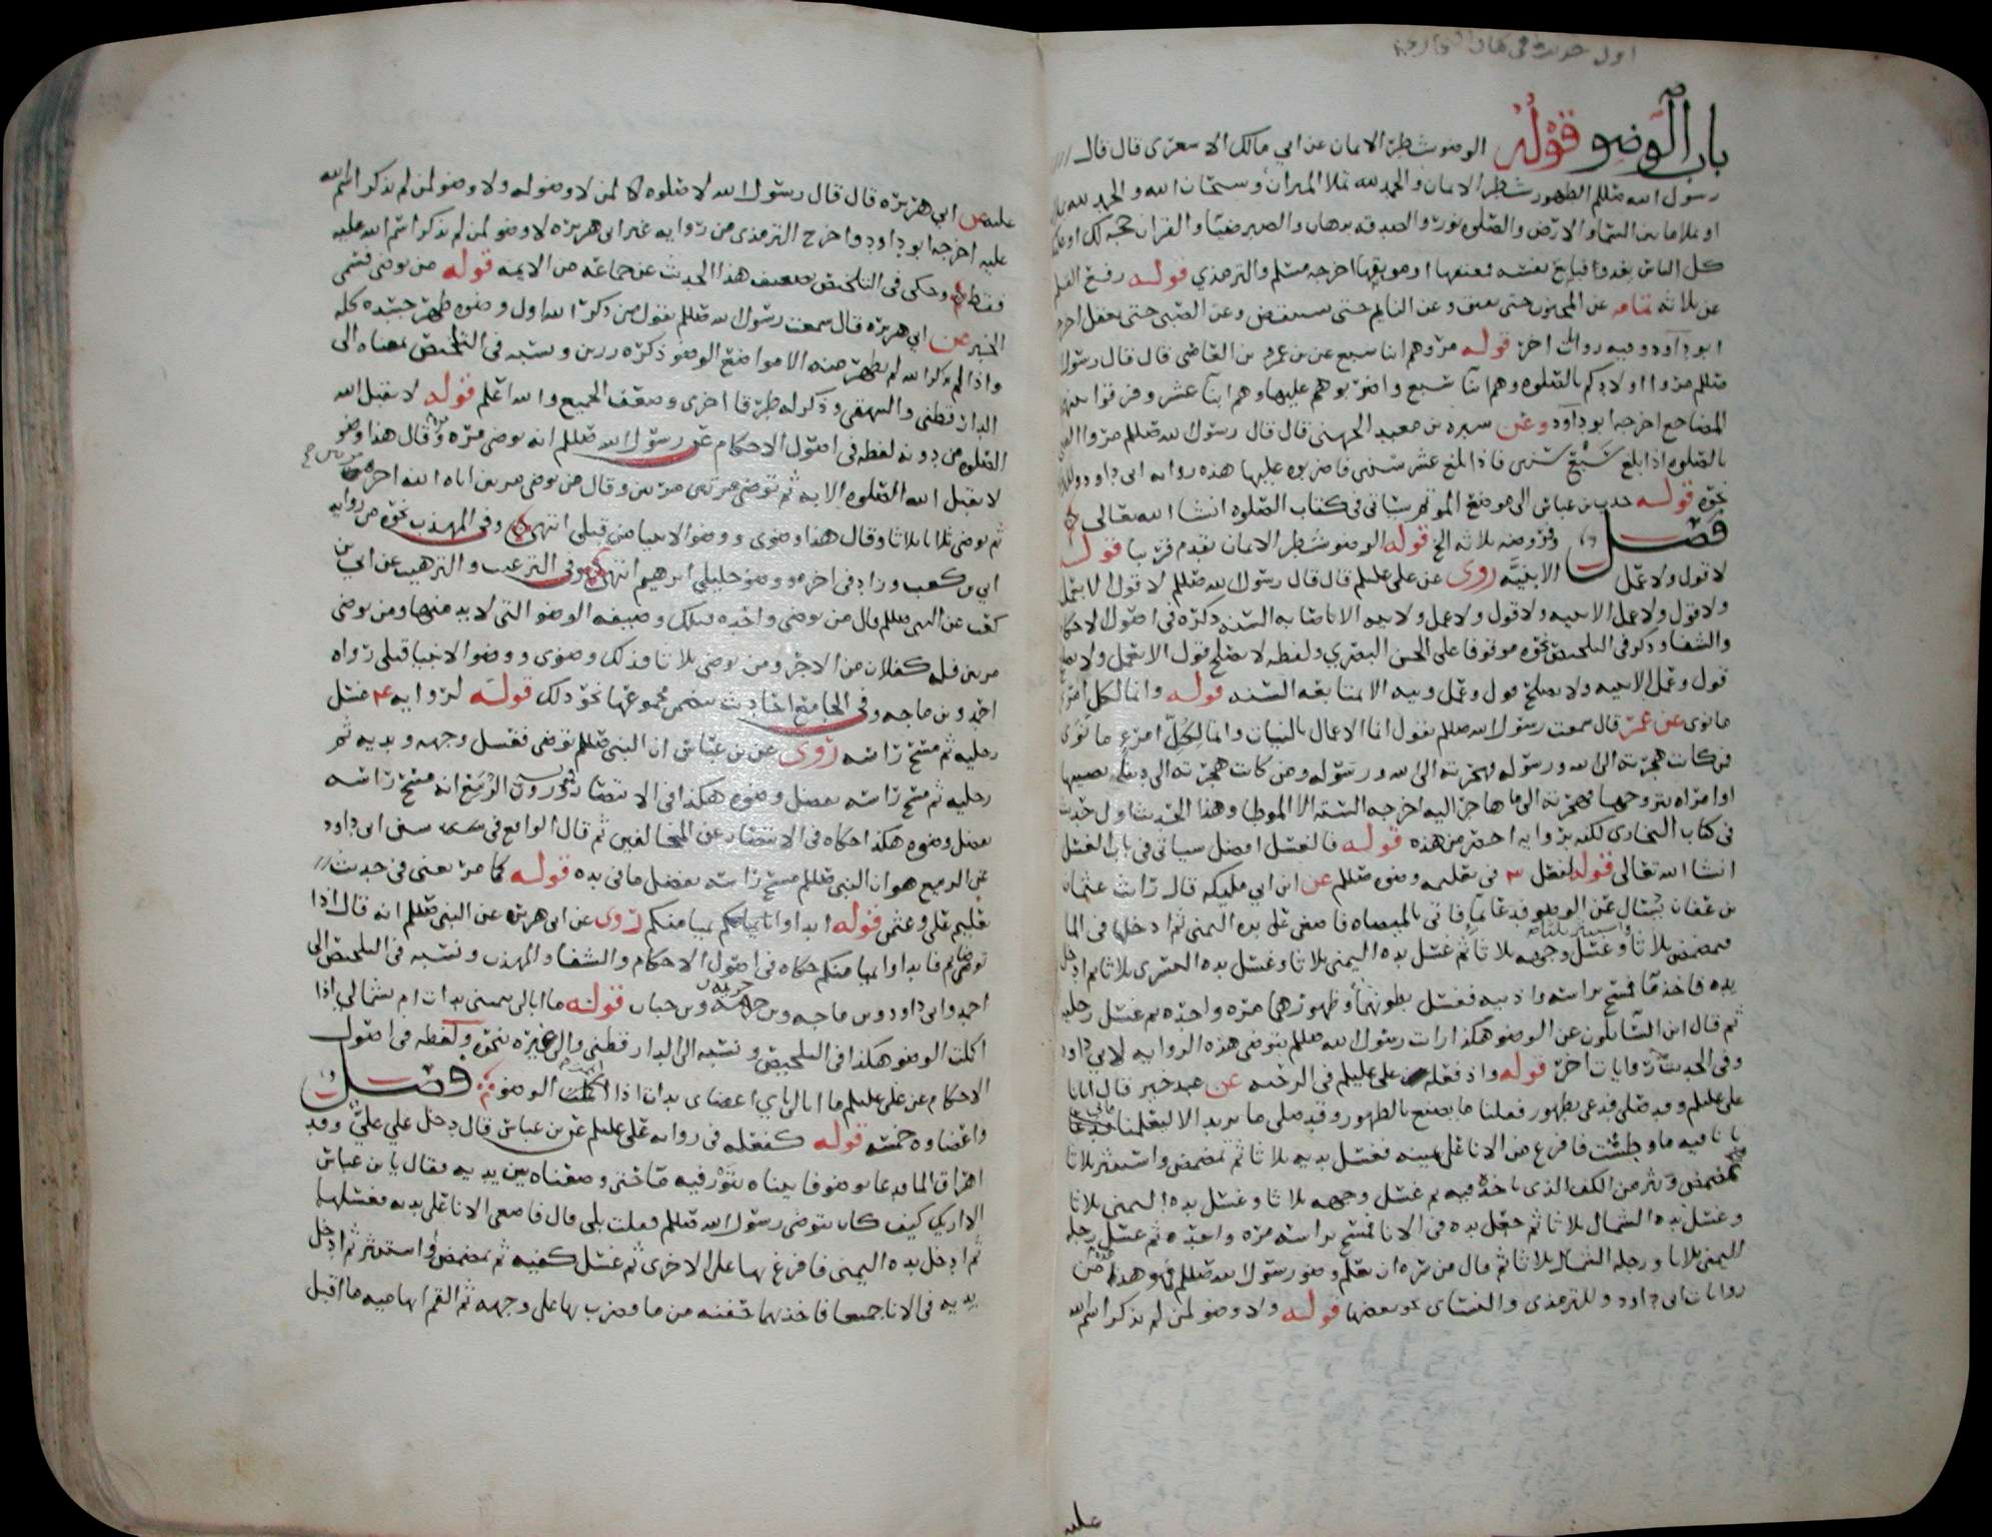 باب الوضو قوله الوضو شطر الايمان عن ابي مالك الاشعري قال قال
رسول الله صللم الطهور شطر الايمان والحمد لله تملا الميزان وسبحان الله والحمد لله
او تملا ما بين السما والارض والصلوه نور والصدقه برهان والصبر ضيا والقران حجه لك او عليك
كل الناس يغدوا فبايع نفسه فمعتقها او موبقها اخرجه مسلم والترمذي قوله رفع القلم
عن ثلاثه تمامه عن المجنون حتى يفيق وعن النايم حتى يستيقض وعن الصبي حتى يعقل
ابو داود وفيه روايات اخر قوله مروهم ابنا سبع عن بن عمرو بن العاصي قال قال رسول
صللم مروا اولادكم بالصلوه وهم ابنا سبع واضربوهم عليها وهم ابنا عشر وفرقوا بينهم
المضاجع اخرجه ابو داود وعن سبره بن معبد الجهني قال قال رسول الله صللم مروا
بالصلوه اذا بلغ سبع سنين فاذا بلغ عشر سنين فاضربوه عليها هذه روايه ابي داود
نحوه قوله حديث بن عباس الى موضع الموتم سياتي في كتاب الصلوه انشا الله تعالى
فصل وفروضه ثلاثه الخ قوله الوضو شطر الايمان تقدم قريبا قوله
لا قول ولا عمل الا بنيه روى عن علي عليلم قال قال رسول الله صللم لا قول الا بعمل
ولا قول ولا عمل الا بنيه ولا قول ولا عمل ولا نيه الا باصابه السنه ذكره في اصول الاحكام
والشفا وذكر في التلخيص نحوه موقوفا على الحسن البصري ولفظه لا يصلح قول الا بعمل ولا يصلح
قول وعمل الا بنيه ولا يصلح قول وعمل ونيه الا بمتابعه السنه قوله وانما لكل امرئ
ما نوى عن عمر قال سمعت رسول الله صللم يقول انما الاعمال بالنيات وانما لكل امرئ ما نوى
فمن كانت هجرته الى الله ورسوله فهجرته الى الله ورسوله ومن كانت هجرته الى دنيا يصيبها
او امراه يتزوجها فهجرته الى ما هاجر اليه اخرجه السته الا الموطا وهذا الحديث اول حديث
في كتاب البخاري لكنه بروايه اخصر من هذه قوله فالغسل افضل سياتي في باب الغسل
انشا الله تعالى قوله لفعل في تعليمه وضوه صللم عن ابن ابي مليكه قال رايت عثمان
بن عفان يسال عن الوضو فدعا بما فاتى بالميضاه فاصغى على يده اليمنى ثم ادخلها في الما
فمضمض ثلاثا واستنثر ثلاثا وغسل وجهه ثلاثا ثم غسل يده اليمنى ثلاثا وغسل يده اليسرى ثلاثا ثم ادخل
يده فاخذ ما فمسح براسه واذنيه فغسل بطونهما وظهورهما مره واحده ثم غسل رجليه
ثم قال اين السايلون عن الوضو هكذا رايت رسول الله صللم يتوضى هذه الروايه لابي داود
وفي الحديث روايات اخر قوله واذ فعله علي عليلم في الرحبه عن عبد خير قال اتانا
علي عليلم وقد صلى فدعى بطهور فقلنا ما يصنع بالطهور وقد صلى ما يريد الا ليعلمنا
بانا فيه ما وطشت فافرغ من الانا على يمينه فغسل يديه ثلاثا ثم تمضمض واستنثر ثلاثا
تمضمض ونثر من الكف الذي ياخذ فيه ثم غسل وجهه ثلاثا وغسل يده اليمنى ثلاثا
وغسل يده الشمال ثلاثا ثم جعل يده في الانا فمسح براسه مره واحده ثم غسل رجله
اليمنى ثلاثا ورجله الشمال ثلاثا ثم قال من سره ان يعلم وضو رسول الله صللم فهو هذا
روايات ابي داود وللترمذي والنساي نحو بعضها قوله ولا وضو لمن لم يذكر اسم الله
عليه
عليه عن ابي هريره قال قال رسول الله لا صلوه لمن لا وضو له ولا وضو لمن لم يذكر اسم الله
عليه اخرجه ابو داود واخرج الترمذي من روايه غير ابي هريره لا وضو لمن لم يذكر اسم الله عليه
فقط وحكى في التلخيص تضعيف هذا الحديث عن جماعه من الايمه قوله من توضى فسمى
الخبر عن ابي هريره قال سمعت رسول الله صللم يقول من ذكر الله اول وضوه طهر جسده كله
واذا لم يذكر الله لم يطهر منه الا مواضع الوضو ذكره رزين ونسبه في التلخيص بمعناه الى
الدارقطني والبيهقي وذكر له طرقا اخرى وضعف الجميع والله اعلم قوله لا يقبل الله
الصلوه من دونه لفظه في اصول الاحكام عن رسول الله صللم انه توضى مره مره وقال هذا وضو
لا يقبل الله الصلوه الا به ثم توضى مرتين مرتين وقال من توضى مرتين اتاه الله اجره مرتين
ثم توضى ثلاثا ثلاثا وقال هذا وضوي ووضو الانبيا من قبلي انتهى وفي المهذب نحوه من روايه
ابي بن كعب وزاد في اخره ووضو خليلي ابرهيم انتهى وفي الترغيب والترهيب عن ابي بن
كعب عن النبي صللم قال من توضى واحده فتلك وضيفه الوضو التي لا بد منها ومن توضى
مرتين فله كفلان من الاجر ومن توضى ثلاثا فذلك وضوي ووضو الانبيا قبلي رواه
احمد وبن ماجه وفي الجامع احاديث تتضمن مجموعها نحو ذلك قوله لروايه غسل
رجليه ثم مسح راسه روى عن بن عباس ان النبي صللم توضى فغسل وجهه ويديه ثم
رجليه ثم مسح راسه بفضل وضوه هكذا في الانتصار وروت الربيع انه مسح راسه
بفضل وضوه هكذا حكاه في الانتصار عن المخالفين ثم قال الواقع في سنن ابي داود
عن الربيع هو ان النبي صللم مسح راسه بفضل ما في يده قوله كما مر يعني في حديث
تعليم علي وعثمن قوله ابداوا بميامنكم روى عن ابي هريره عن النبي صللم انه قال اذا
توضاتم فابداوا بميامنكم حكاه في اصول الاحكام والشفا والمهذب ونسبه في التلخيص الى
احمد وابي داود وبن ماجه وبن خزيمه وبن حبان قوله ما ابالي بيميني بدات ام بشمالي اذا
اكملت الوضو هكذا في التلخيص ونسبه الى الدارقطني والى غيره نحوه ولفظه في اصول
الاحكام عن علي عليلم ما ابالي باي اعضاي بدات اذا اكملت الوضو فصل
واعضاوه خمسه قوله كفعله في روايه علي عليلم عن بن عباس قال دخل علي علي وقد
اهراق الما فدعا بوضو فاتيناه بتور فيه ما حتى وضعناه بين يديه فقال يا بن عباس
الا اريك كيف كان يتوضى رسول الله صللم فقلت بلى قال فاصغى الانا على يديه فغسلهما
ثم ادخل يده اليمنى فافرغ بها على الاخرى ثم غسل كفيه ثم تمضمض واستنثر ثم ادخل
يديه في الانا جميعا فاخذ بهما حفنه من ما وضرب بها على وجهه ثم القم ابهاميه ما اقبل